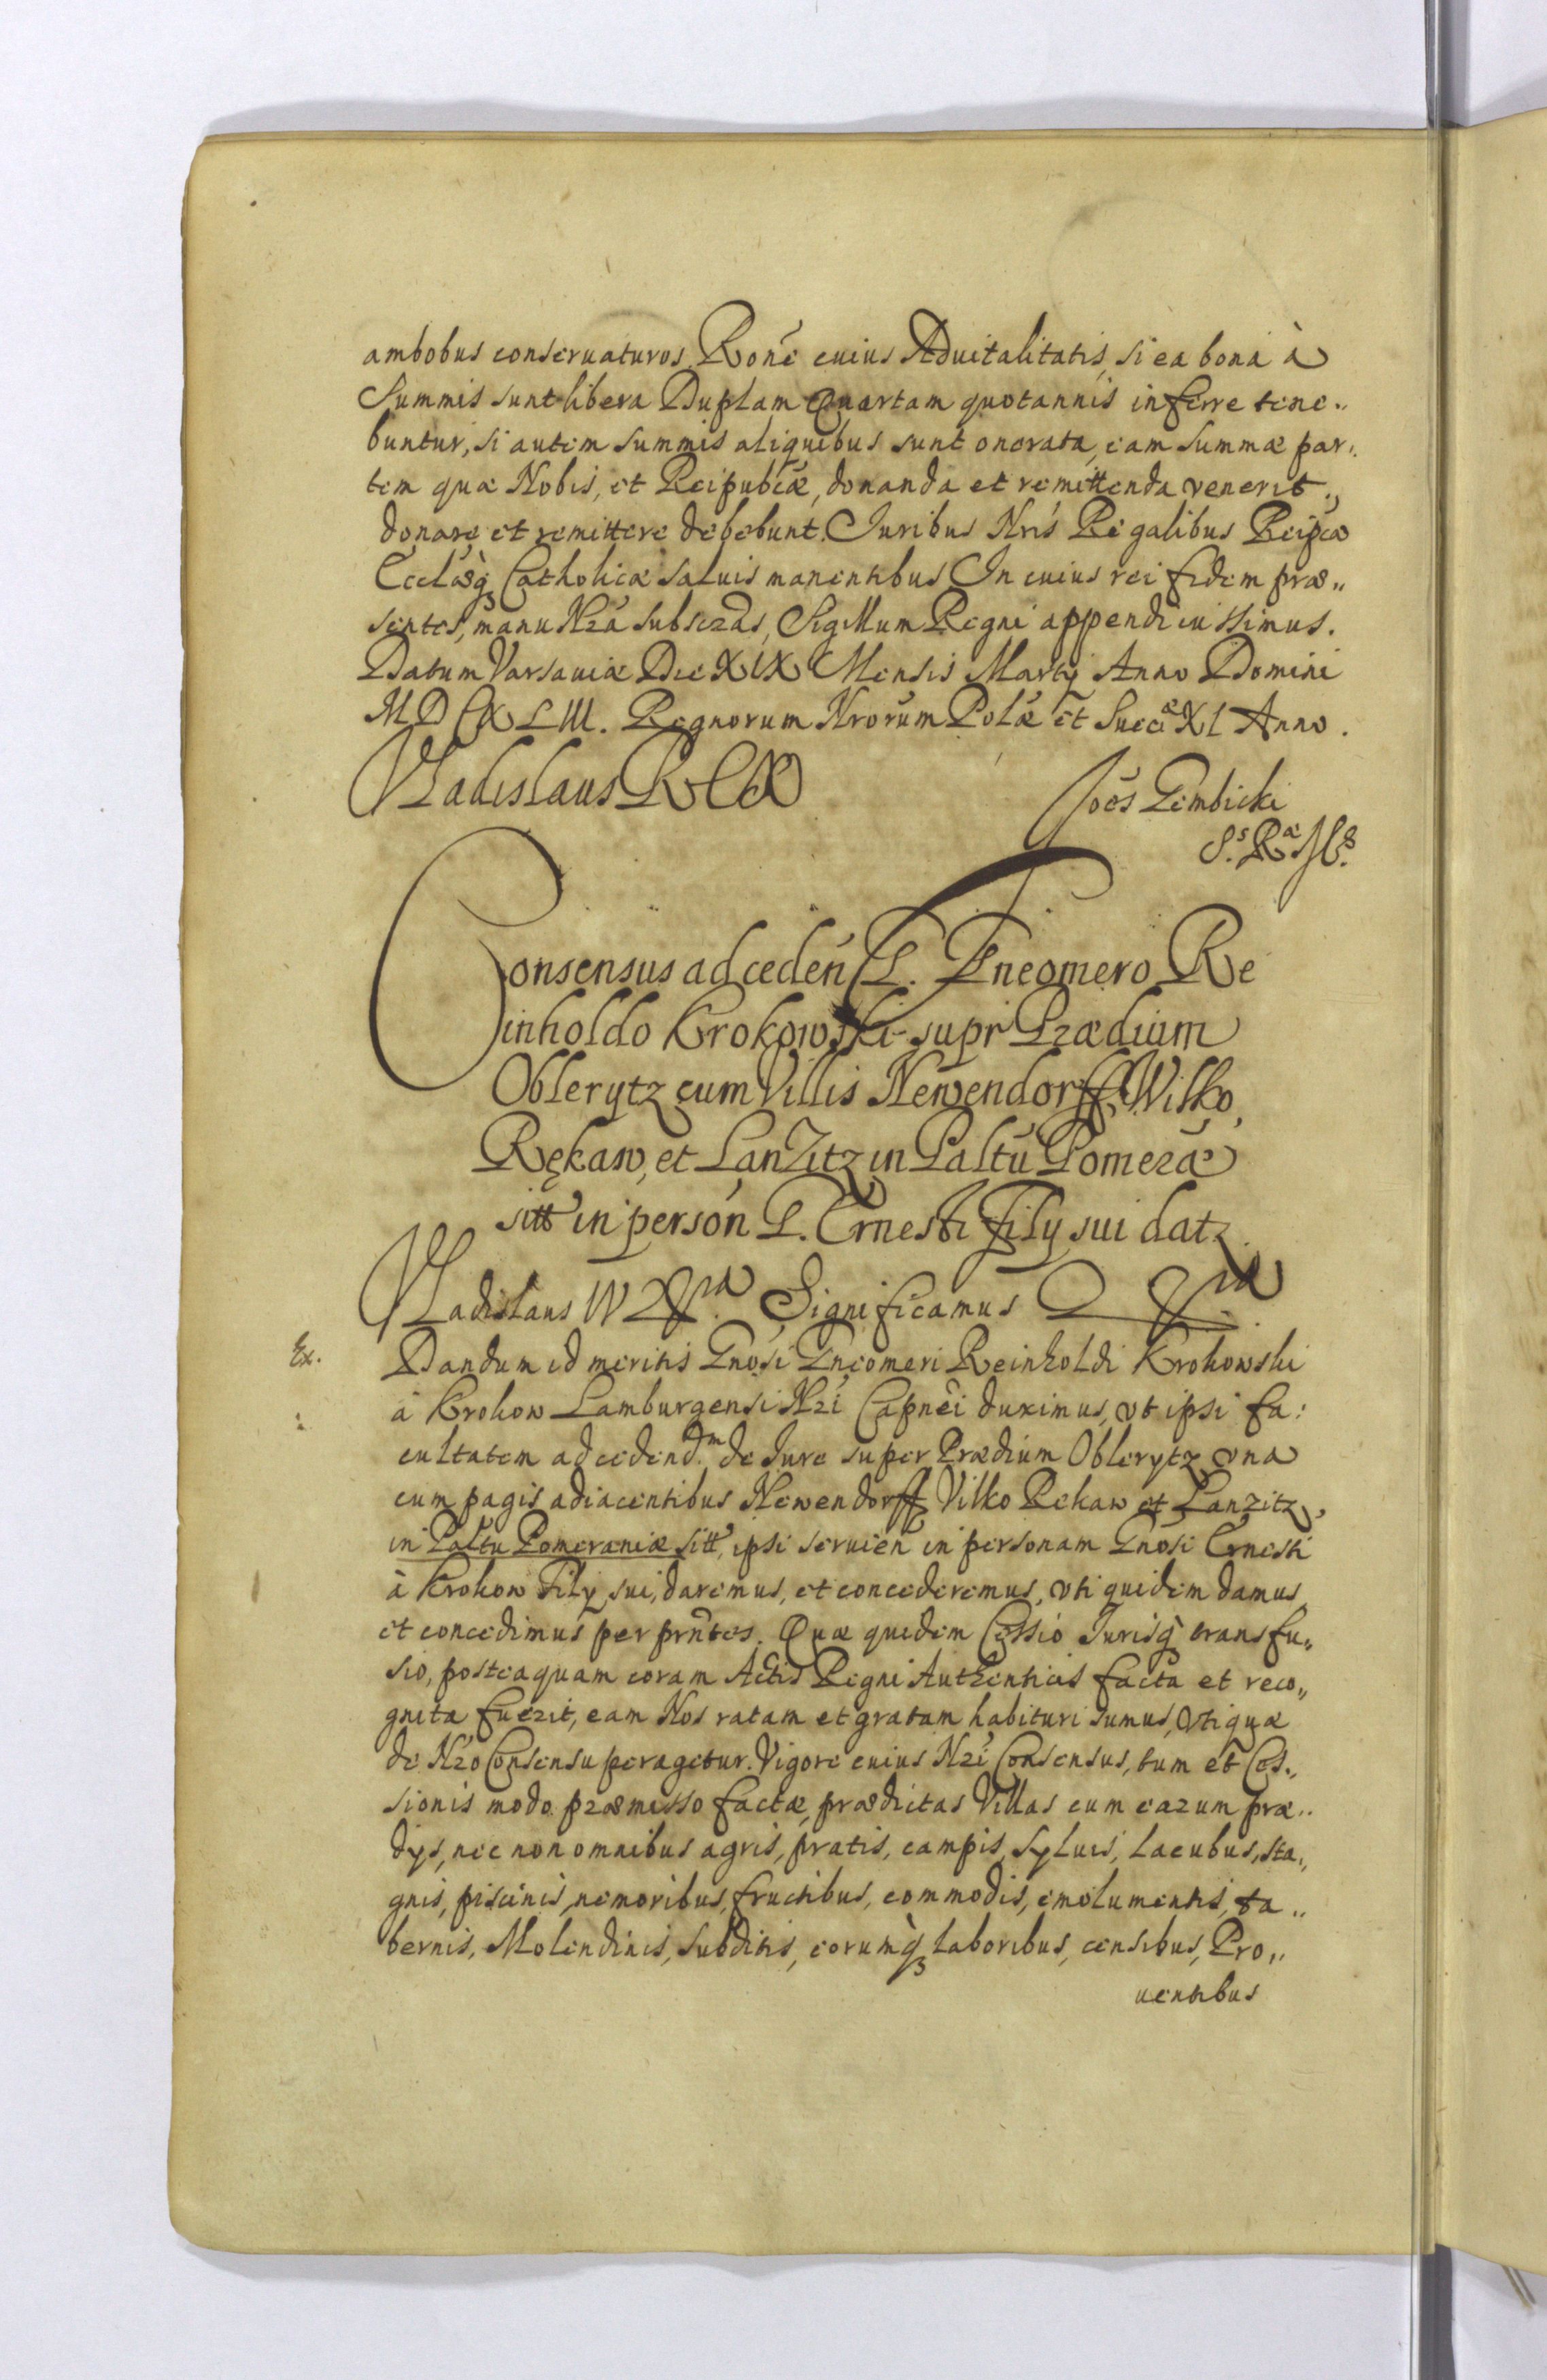 ambobus conseruaturos. Roné cuius Aduitalitatis, si ea bona à
Summis sunt libera Duplam Quartam quotannis inferre tene„
buntur, si autem summis aliquibus sunt onerata, eam summæ par„
tem quæ Nobis, et Reipubcæ, donanda et remittenda venerit„
donare et remittere debebunt. Juribus Nris Regalibus Reipcæ
Eccląéq3 Catholicæ saluis manentibus. In cuius rei fidem præ„
sentes, manu Nrá subscras, Sigillum Regni appendi iussimus.
Datum Varsauiæ Die XIX Mensis Martij Anno Domini
MDCXLIII. Regnorum Nrorum Polæ et Sueciæ XI Anno.
Vladislaus REX
Joés Gembicki
S.s R.æ Ms.
Consensus ad cedeń G. Gneomero Re
inholdo Krokowski supr Prædium
Oblerytz cum Villis Newendorff, Wilko,
Rękaw, et Lanzitz in Paltu Pomeræ
sitt in persón G. Ernesti Fily sui datz.
Vladislaus IV &ra. Significamus &ra.
Ex.
Dandum id meritis Gnosi Gneomeri Reinholdi Krokowski
à Krokow Lamburgensi Nri Capnei duximus, vt ipsi fa:
cultatem ad cedend.m de Jure super Prædium Oblerytz vna
cum pagis adiacentibus Newendorff Vilko Rekaw et Lanzitz,
in Paltu Pomeraniæ sitt, ipsi seruień in personam Gnosi Ernesti
à Krokow Fily sui, daremus, et concederemus, vti quidem damus
et concedimus per prntes. Quæ quidem Cessio Jurisq transfu„
sio, posteaquam coram Actis Regni Authenticis facta et reco„
gnita fuerit, eam Nos ratam et gratam habituri sumus, vti quæ
de Nro Consensu peragetur. Vigore cuius Nri Consensus, tum et Ces„
sionis modo præmisso factæ, prædictas Villas cum earum præ„
dys, nec non omnibus agris, pratis, campis, syluis, lacubus, sta„
gnis, piscinis, nemoribus, fructibus, commodis, emolumentis, ta„
bernis, Molendinis, subditis, eorumq3 laboribus, censibus, Pro„
uentibus